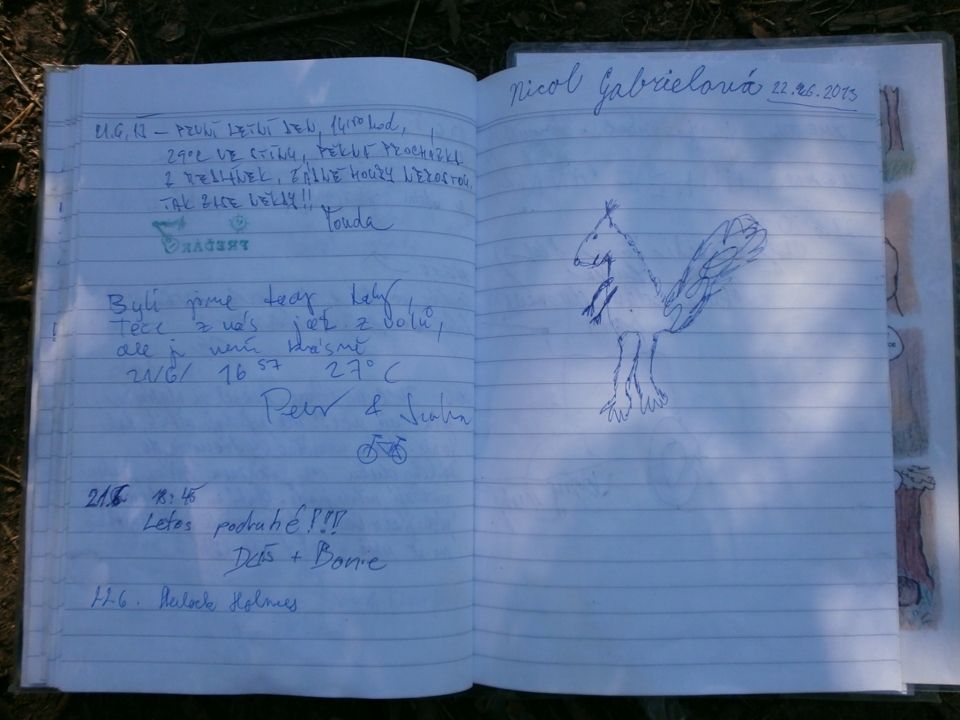 21.6.13 – PRVNÍ LETNÍ DEN, 14:10 hod,
29°C VE STÍNU, PĚKNÁ PROCHÁZKA
Z ŘEDHINEK, ŽÁDNÉ HOUBY NEROSTOU,
TAK ZASE NĚKDY!!
Touda
Byli jsme tady taky,
Teče z nás jak z volů,
ale je nám krásně
21/6/ 16 57 27° C
Petr &
21.6. 18:45
Letos podruhé!!!
+ Bonie
22.6. Holmes
Nicol Gabrielová 22.06.2013